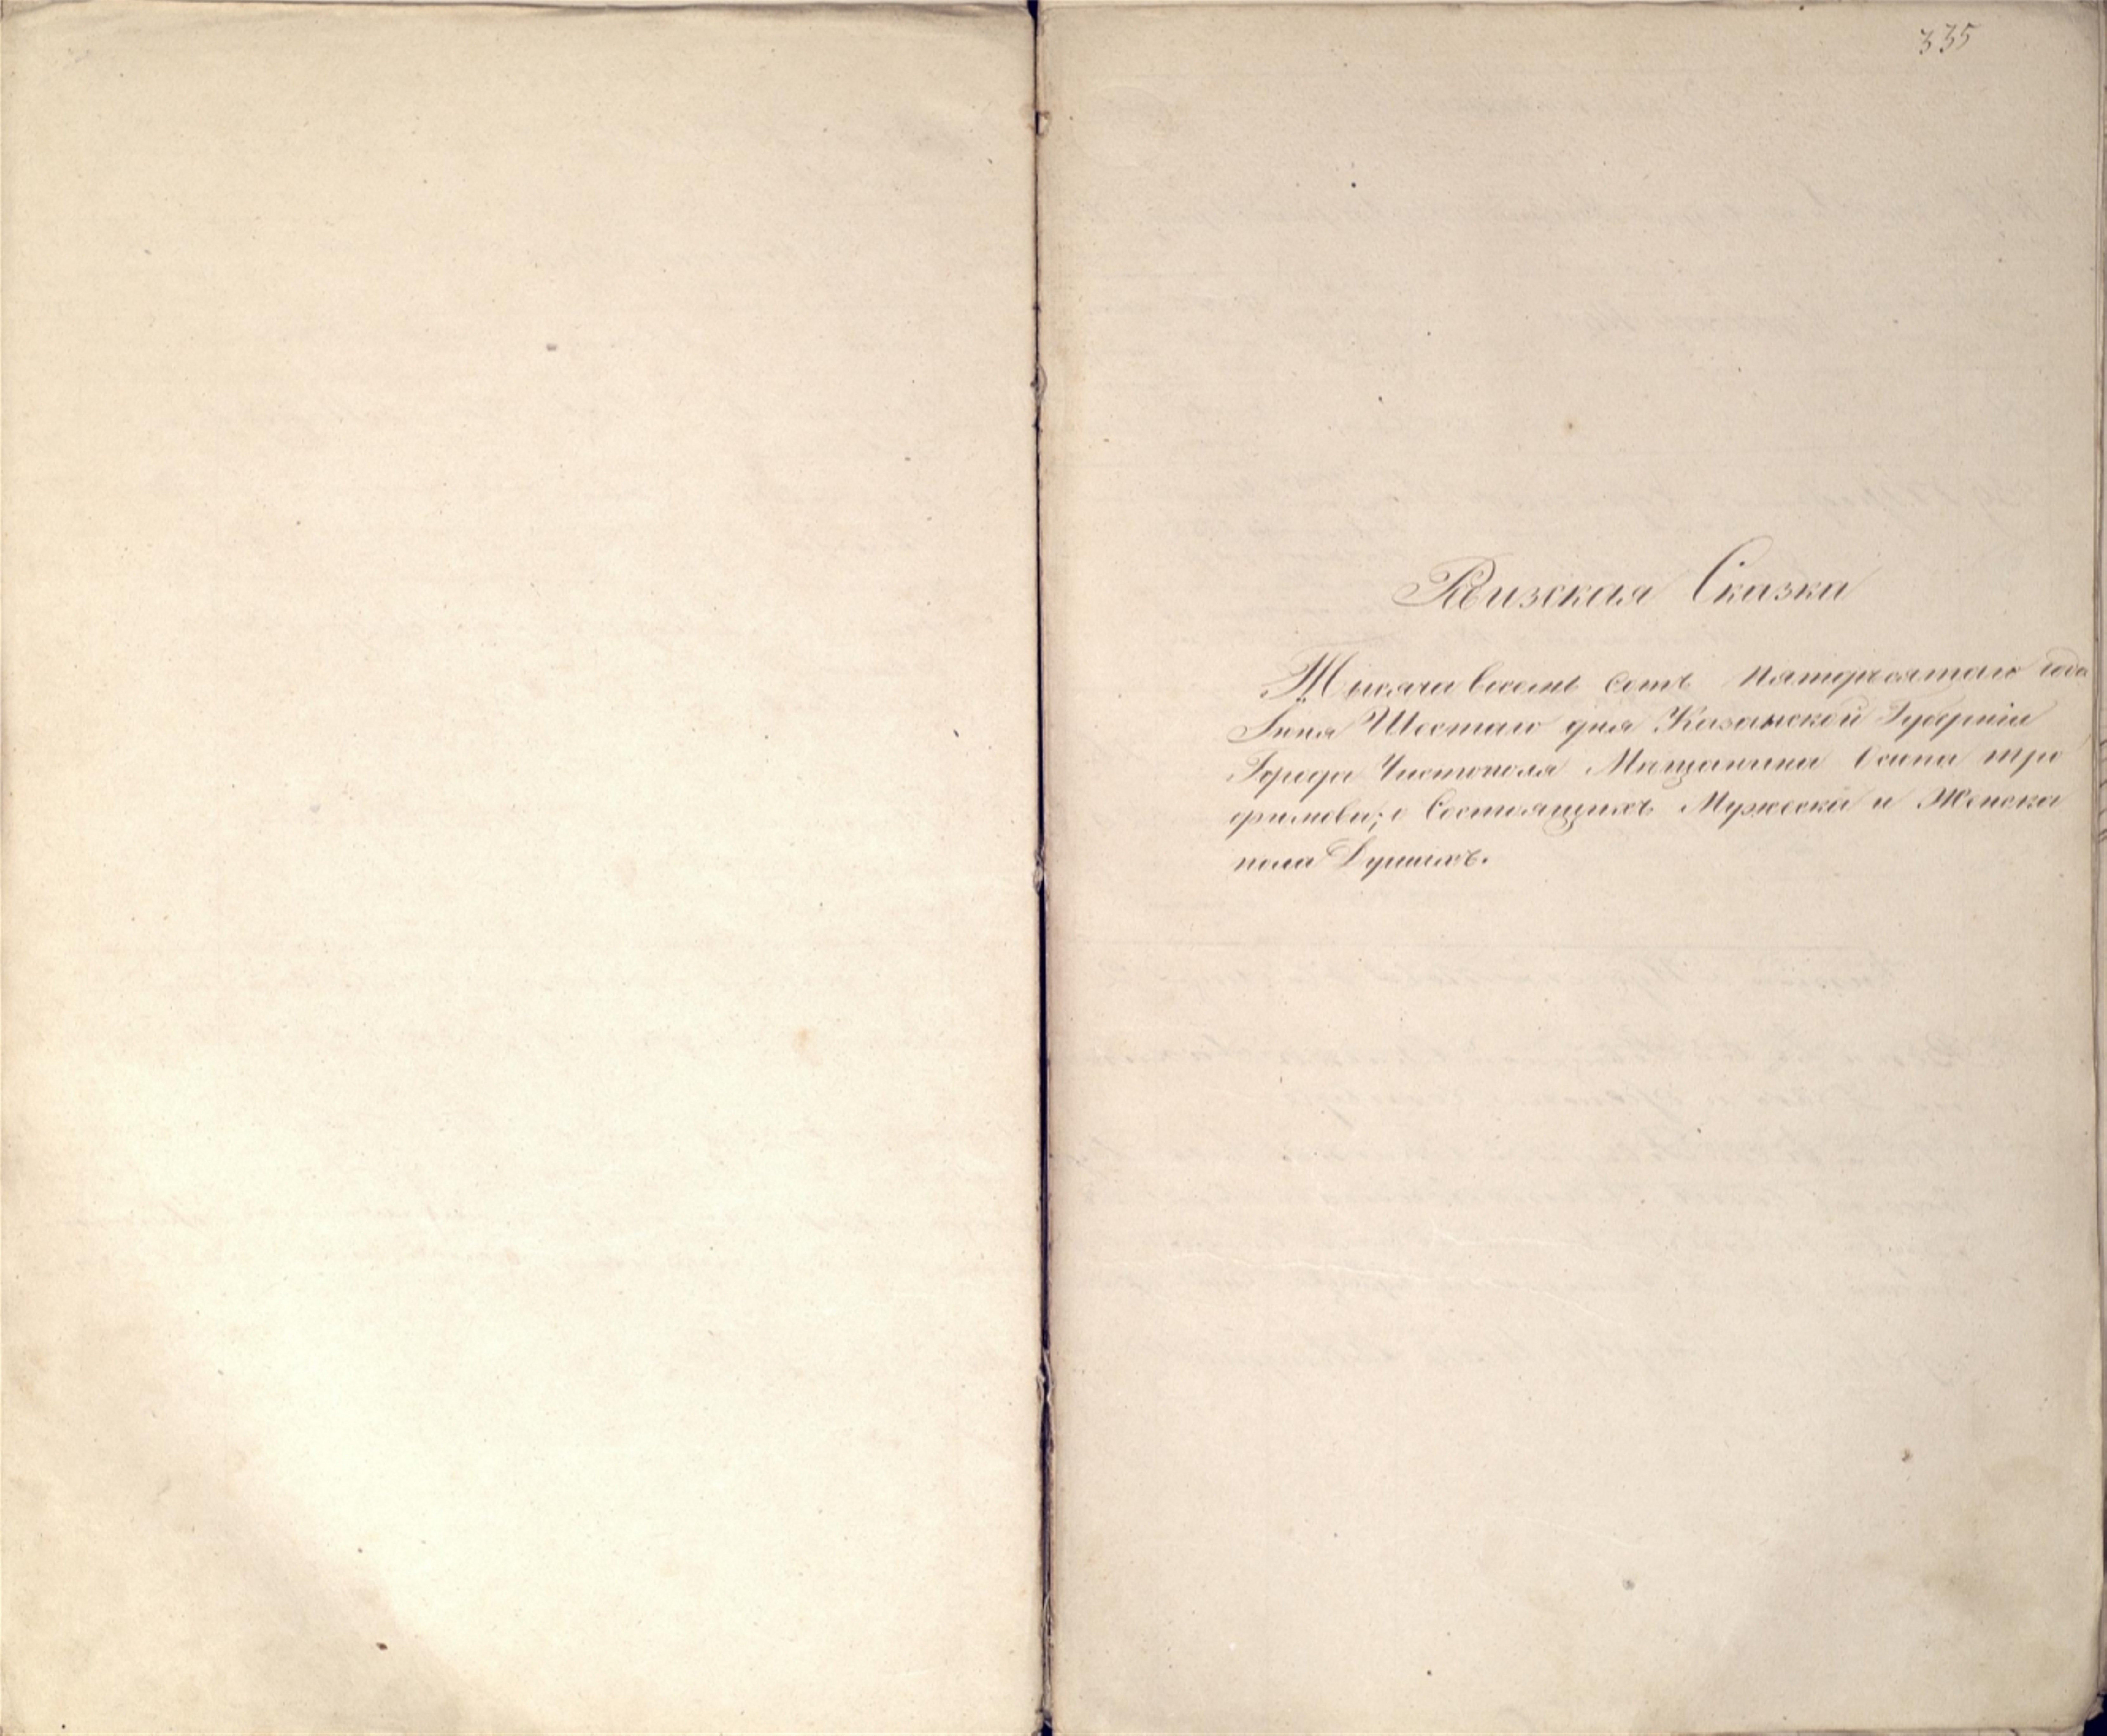 335
Ревизская Сказка
Тысяча восемь сотъ пятидесятаго года
Iюня Шестаго дня Казанской Губерніи
Города Чистополя Мѣщанина Осипа Тро
фимова; о Состоящихъ Мужеска и Женска
пола Душахъ.